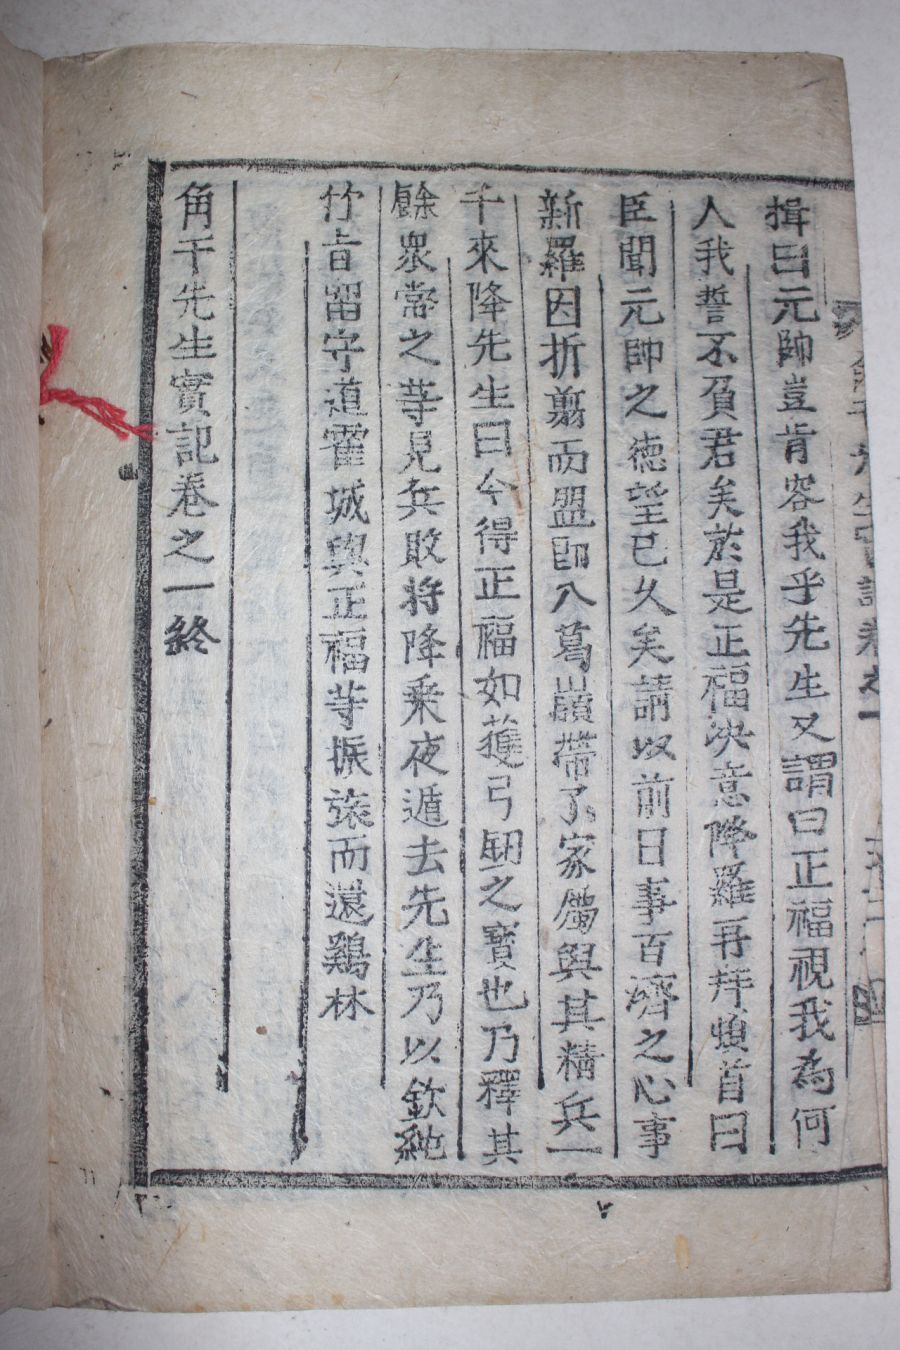 揖曰元帥豈肯容我乎先生又謂曰正福視我為何
人我誓不負君矣於是正福决意降羅再拜頓首曰
臣聞元帥之德望已久矣請以前日事百濟之心事
新羅因折剪而盟即入葛嶺帶了家屬與其精兵一
千來降先生曰今得正福如獲弓閭之寶也乃釋其
餘眾常之等見兵敗將降乗夜遁去先生乃以欽純
竹旨留守道霍城與正福等振旅而還鷄林
角干先生實記卷之一終
角干先生實記卷之一